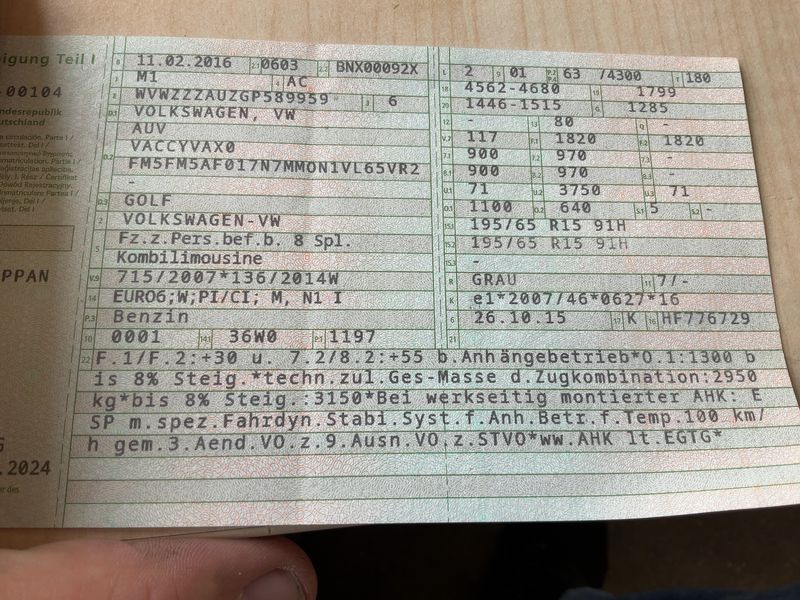 igung Teil I
-00104
ndesrepublik
utschland
PPAN
.2024
B 11.02.2016 2.1 0603 2.2 BNX00092X
J M1 4 AC
E WVWZZZAUZGP589959 3 6
D.1 VOLKSWAGEN, VW
AUV
D.2 VACCYVAX0
FM5FM5AF017N7MMON1VL65VR2
-
D.3 GOLF
2 VOLKSWAGEN-VW
5 Fz.z.Pers.bef.b. 8 Spl.
Kombilimousine
V.9 715/2007*136/2014W
14 EURO6;W;PI/CI; M, N1 I
P.3 Benzin
10 0001 14.1 36W0 P.1 1197
L 2 9 01 P.2 P.4 63 /4300 T 180
18 4562-4680 19 1799
20 1446-1515 G 1285
12 - 13 80 Q -
V.7 117 F.1 1820 F.2 1820
7.1 900 7.2 970 7.3 -
8.1 900 8.2 970 8.3 -
U.1 71 U.2 3750 U.3 71
O.1 1100 O.2 640 S.1 5 S.2 -
15.1 195/65 R15 91H
15.2 195/65 R15 91H
15.3 -
R GRAU 11 7/-
K e1*2007/46*0627*16
6 26.10.15 17 K 16 HF776729
21
22 F.1/F.2:+30 u. 7.2/8.2:+55 b.Anhängebetrieb*O.1:1300 b
is 8% Steig.*techn.zul.Ges-Masse d.Zugkombination:2950
kg*bis 8% Steig.:3150*Bei werkseitig montierter AHK: E
SP m.spez.Fahrdyn.Stabi.Syst.f.Anh.Betr.f.Temp.100 km/
h gem.3.Aend.VO.z.9.Ausn.VO.z.STVO*ww.AHK lt.EGTG*